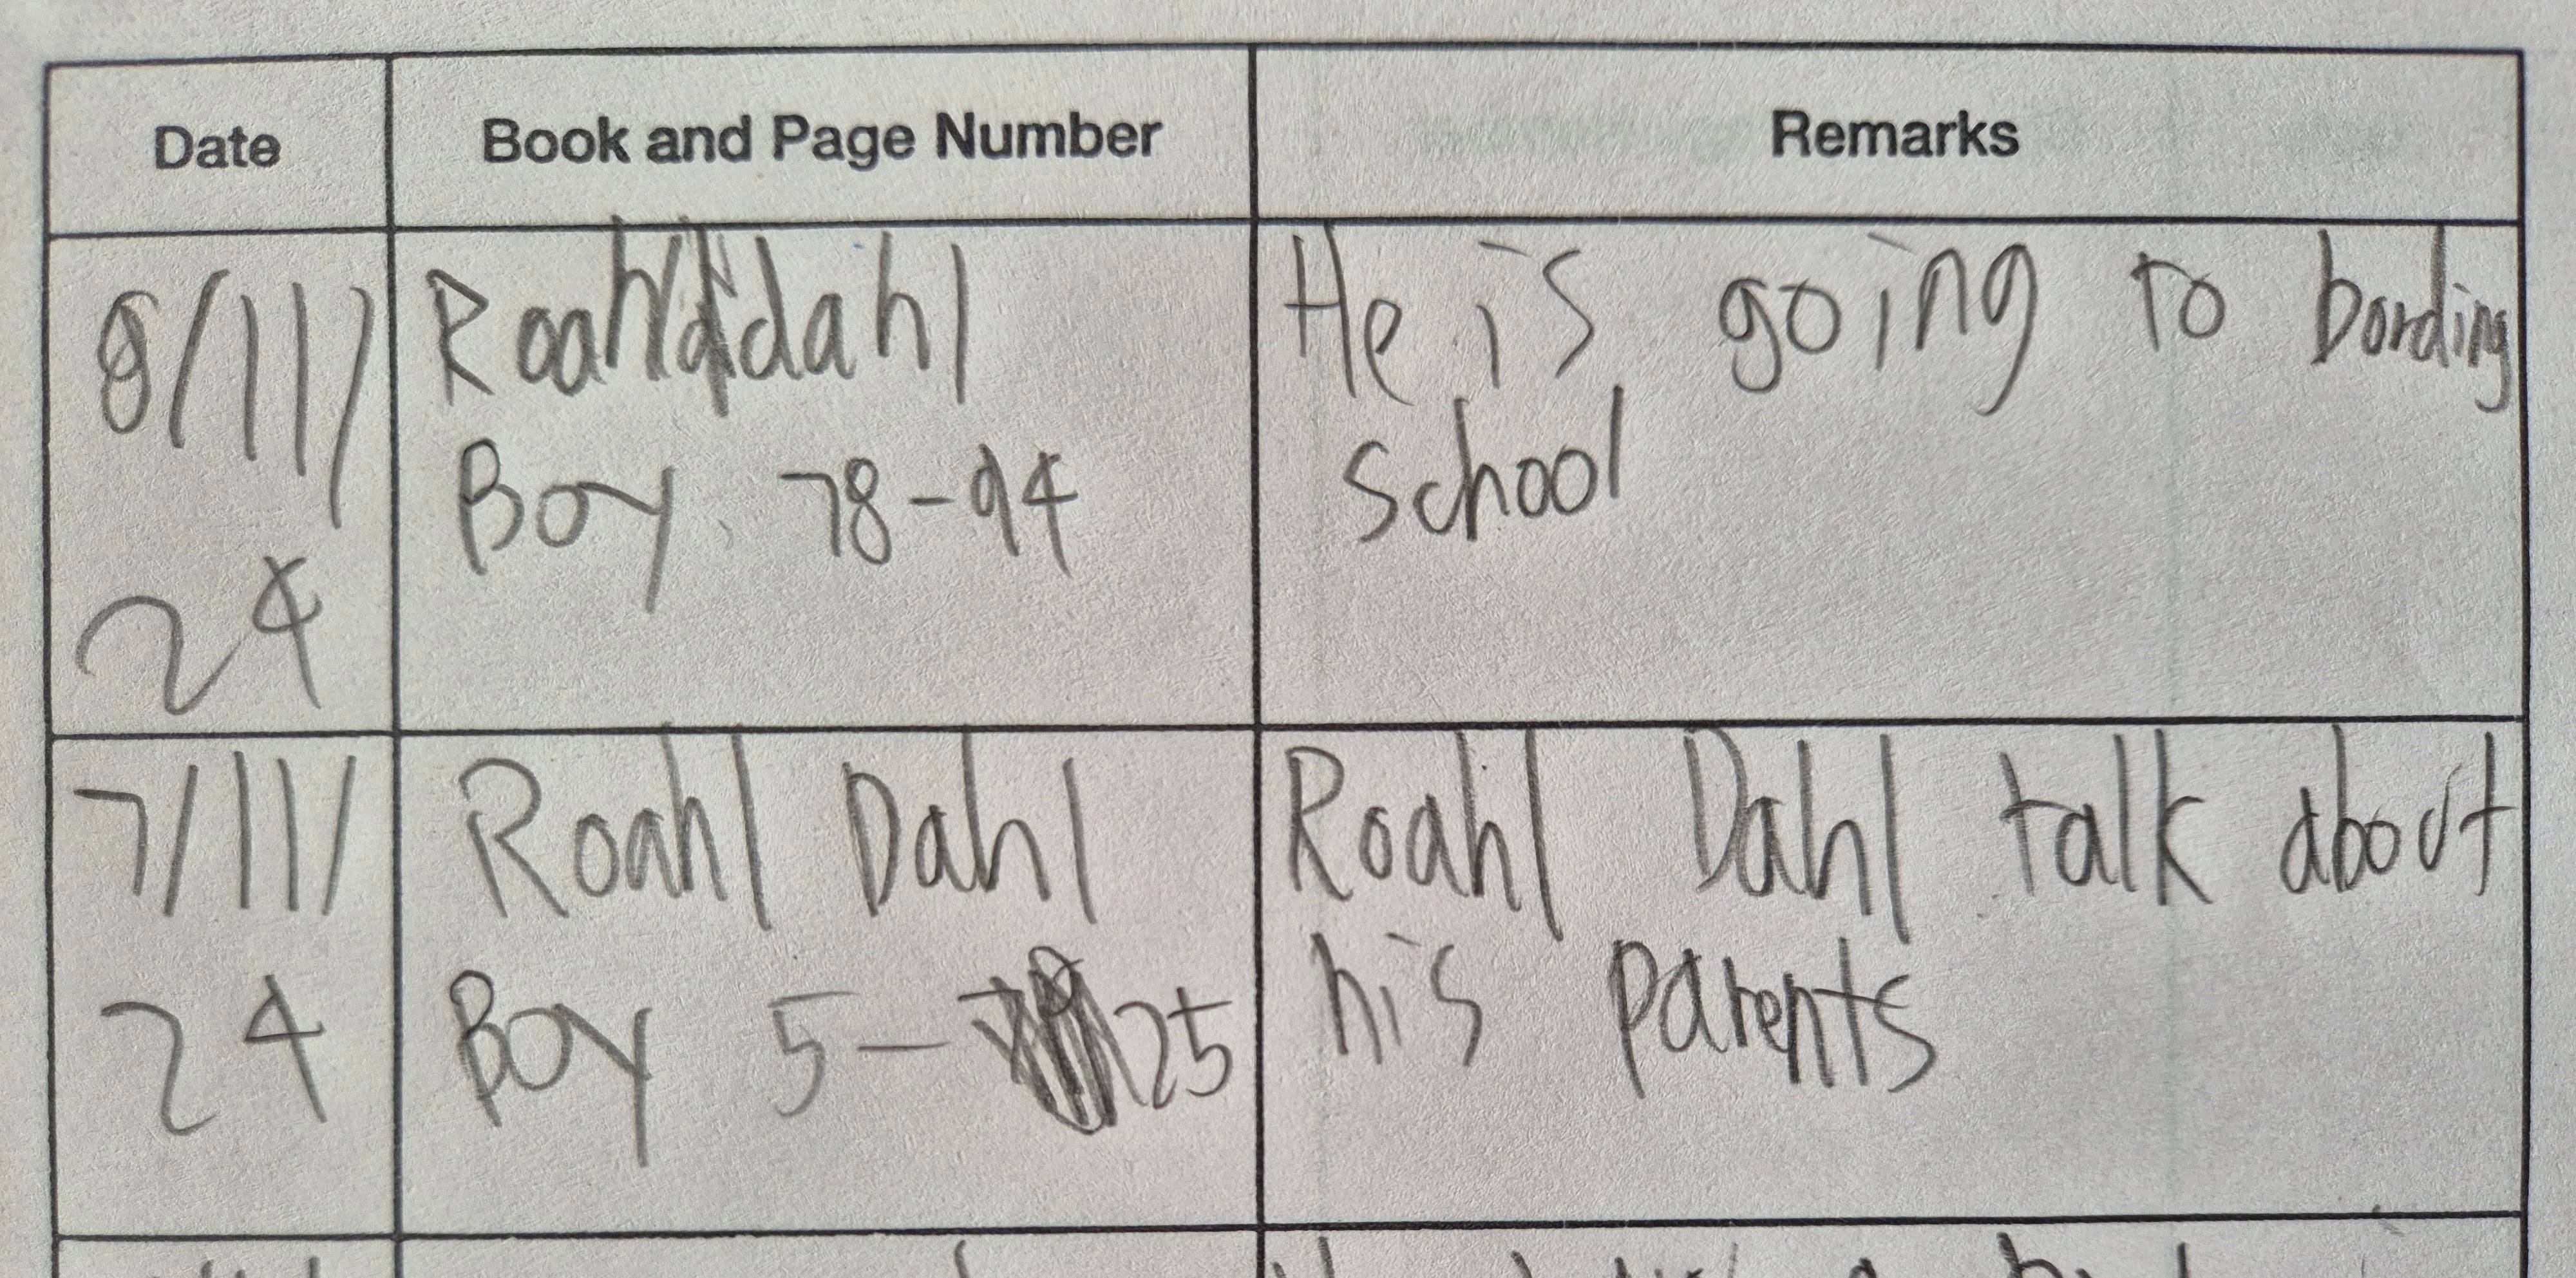 Date Book and Page Number Remarks
8/11/ Roahl dahl He is going to bording
Boy 78-94 school
24
7/11/ Roahl Dahl Roahl Dahl talk about
24 Boy 5- 25 his parents